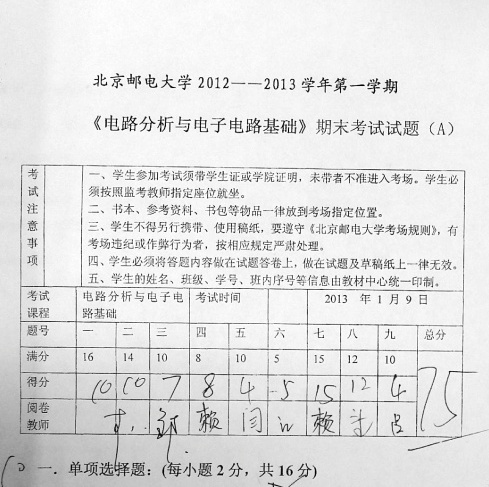 北京邮电大学2012——2013学年第一学期
《电路分析与电子电路基础》期末考试试题（A）
考试注意事项
一、学生参加考试须带学生证或学院证明，未带者不准进入考场。学生必
须按照监考教师指定座位就坐。
二、书本、参考资料、书包等物品一律放到考场指定位置。
三、学生不得另行携带、使用稿纸，要遵守《北京邮电大学考场规则》，有
考场违纪或作弊行为者，按相应规定严肃处理。
四、学生必须将答题内容做在试题答卷上，做在试题及草稿纸上一律无效。
五、学生的姓名、班级、学号、班内序号等信息由教材中心统一印制。
考试课程 电路分析与电子电路基础 考试时间 2013 年 1 月 9 日
题号 一 二 三 四 五 六 七 八 九 总分
满分 16 14 10 8 10 5 15 12 10
得分 10 10 7 8 4 5 15 12 4 75
阅卷教师 赖 闫 赖 吕
一．单项选择题：(每小题 2 分，共 16 分)